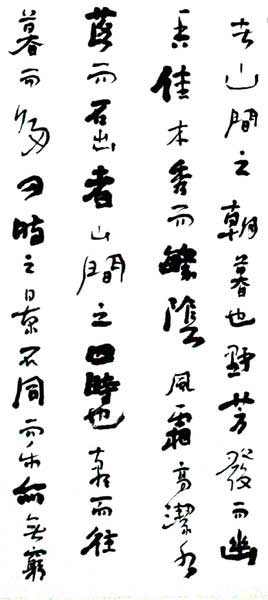 者山間之朝暮也野芳發而幽
香佳木秀而繁陰風霜高潔水
落而石出者山間之四時也朝而往
暮而歸四時之景不同而樂亦無窮